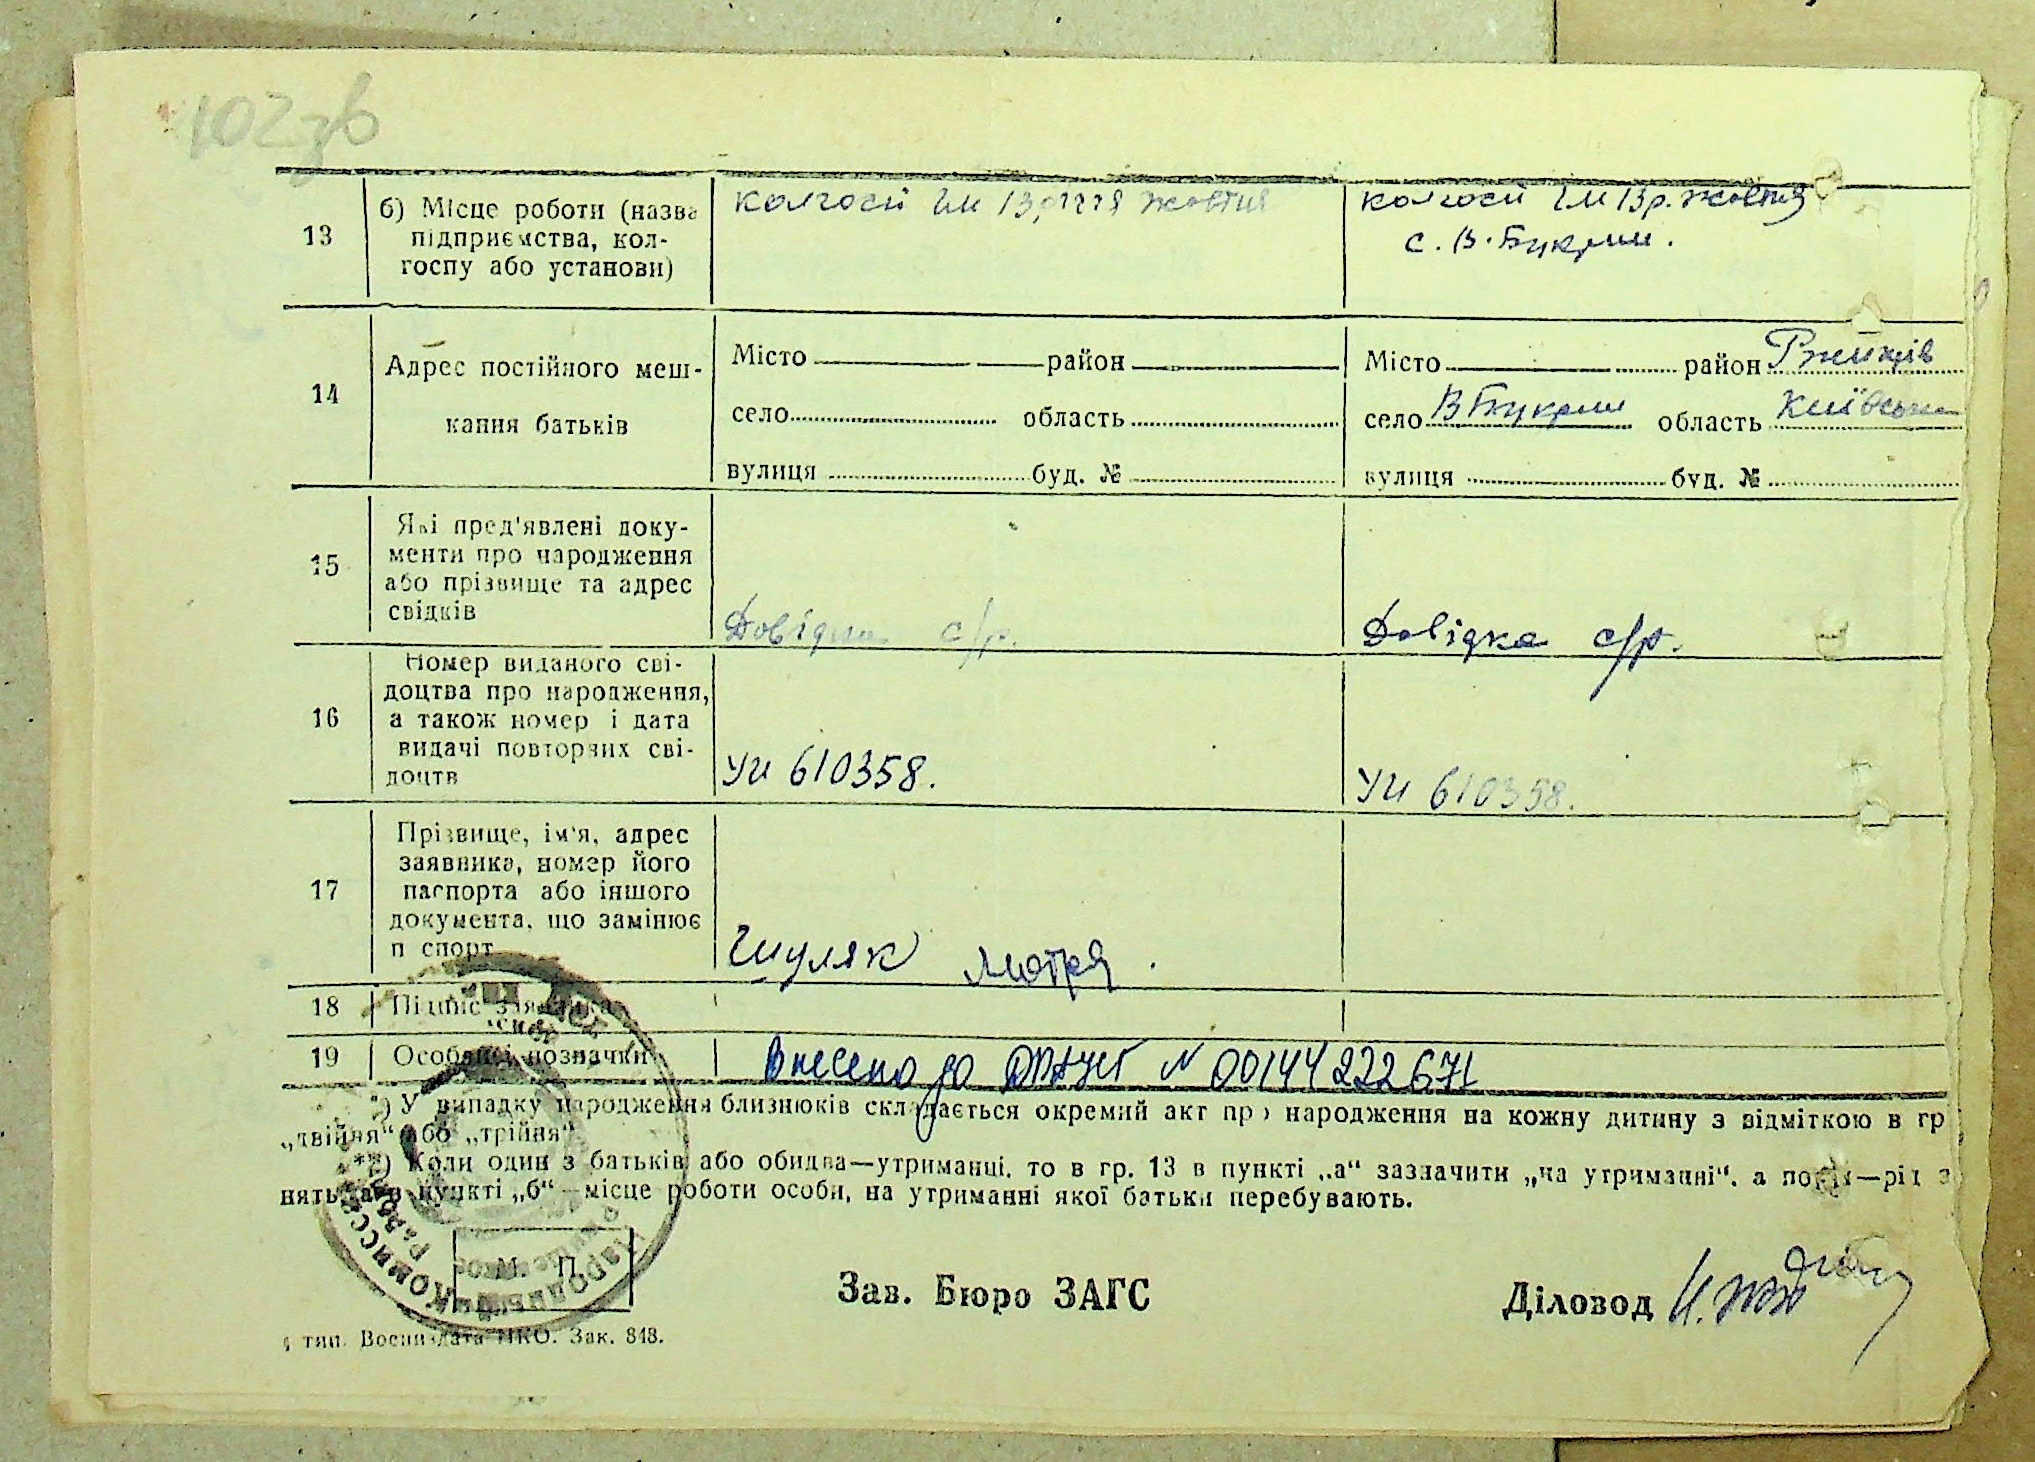 102зв
13
б) Місце роботи (назва
підприємства, кол-
госпу або установи)
колгосп ім 13річчя жовтня
колгосп ім 13р. жовтня
с. В. Букрин.
14
Адрес постійного меш-
кання батьків
Місто район
село область
вулиця буд. №
Місто район Ржищів
село В Букрин область Київська
вулиця буд. №
15
Які пред'явлені доку-
менти про народження
або прізвище та адрес
свідків
Довідка с/р.
Довідка с/р.
16
Номер виданого сві-
доцтва про народження,
а також номер і дата
видачі повторних сві-
доцтв
УИ 610358.
УИ 610358.
17
Прізвище, ім'я, адрес
заявника, номер його
паспорта або іншого
документа, що замінює
п спорт
Шуляк Мотря.
18
Підпис заявника
19
Особливі позначки
Внесено до ДРАЦСГ N 00144222671
*) У випадку народження близнюків складається окремий акт про народження на кожну дитину з відміткою в гр
„двійня“ або „трійня“
**) Коли один з батьків або обидва—утриманці, то в гр. 13 в пункті „а“ зазначити „на утриманні“, а поруч—рід з
нять, а в пункті „б“—місце роботи особи, на утриманні якої батьки перебувають.
М. П.
Зав. Бюро ЗАГС
Діловод
тип. Воениздата НКО. Зак. 848.